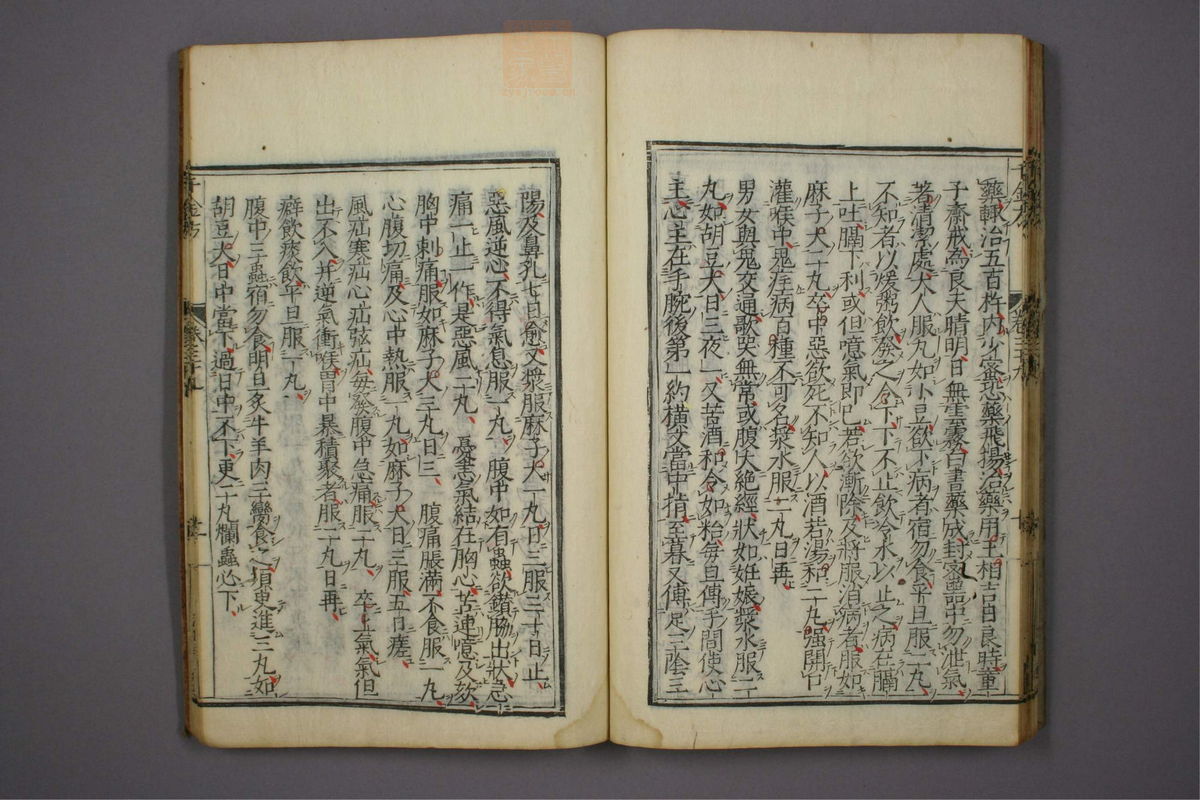 藥輙治五百杵內少蜜恐藥飛揚治藥用王相吉日良時童
子齋戒為良天晴明日無雲霧白晝藥成封密器中勿泄氣
著清潔處大人服丸如小豆欲下病者宿勿食平旦服一丸
不知者以煖粥飲發之令下下不止飲冷水以止之病在膈
上吐膈下利或但噫氣即已若欲漸除及將服消病者服如
麻子大二丸卒中惡欲死不知人以酒若湯和二丸强開口
灌喉中鬼疰病百種不可名漿水服二丸日再
男女與鬼交通歌哭無常或腹大絕經狀如妊娠漿水服二
丸如胡豆大日三夜一又苦酒和令如粘每旦傅手間使心
主心主在手腕後第一約橫文當中指至暮又傅足三陰三
陽及鼻孔七日愈又漿服麻子大一丸日三服三十日止
惡風逆心不得氣息服一丸 腹中如有蟲欲鑽脇出狀急
痛一止一作是惡風二丸 憂恚氣結在胸心苦連噫及欬
胸中刺痛服如麻子大三丸日三 腹痛脹滿不食服一丸
心腹切痛及心中熱服一丸如麻子大日三服五日瘥
風疝寒疝心疝弦疝每發腹中急痛服二丸 卒上氣氣但
出不入并逆氣衝喉胃中暴積聚者服二丸日再
癖飲痰飲平旦服一丸
腹中三蟲宿勿食明旦炙牛羊肉三臠食之須臾進三丸如
胡豆大日中當下過日中不下更二丸爛蟲必下
千金方
卷三十九